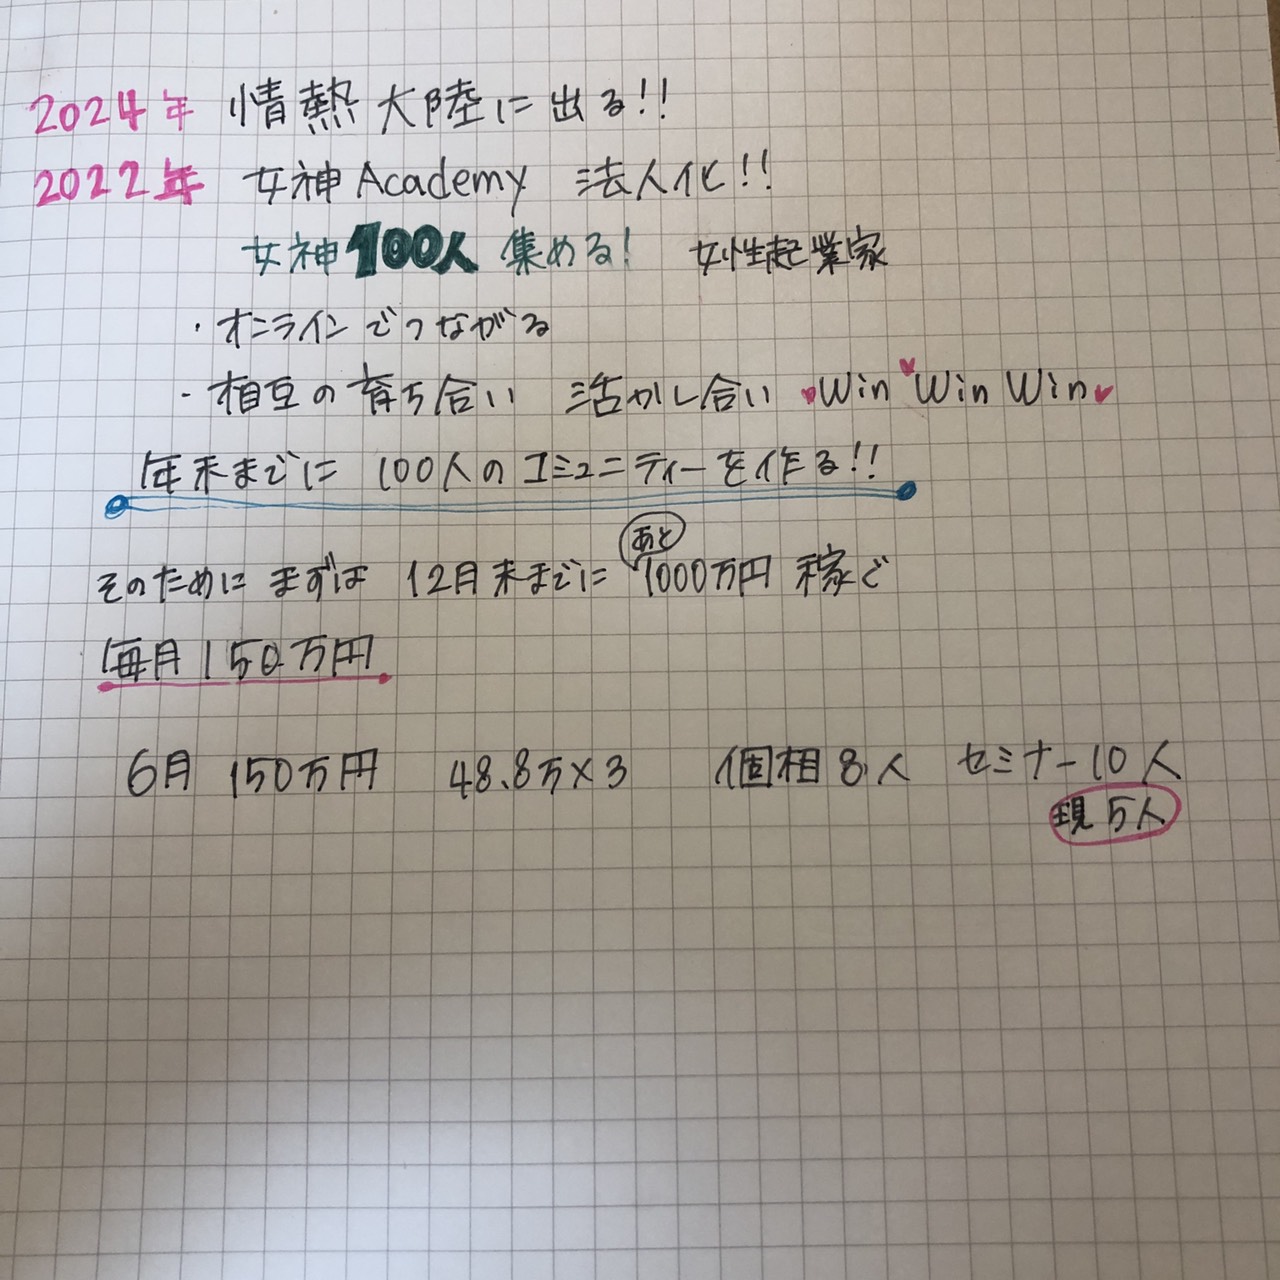 2024年 情熱大陸に出る!!
2022年 女神Academy 法人化!!
女神100人 集める! 女性起業家
・オンラインでつながる
・相互の育ち合い 活かし合い ♥Win♥Win Win♥
年末までに 100人のコミュニティーを作る!!
あと
そのために まずは 12月末までに 1000万円 稼ぐ
毎月150万円
6月 150万円 48.8万×3 個相8人 セミナー10人
現5人